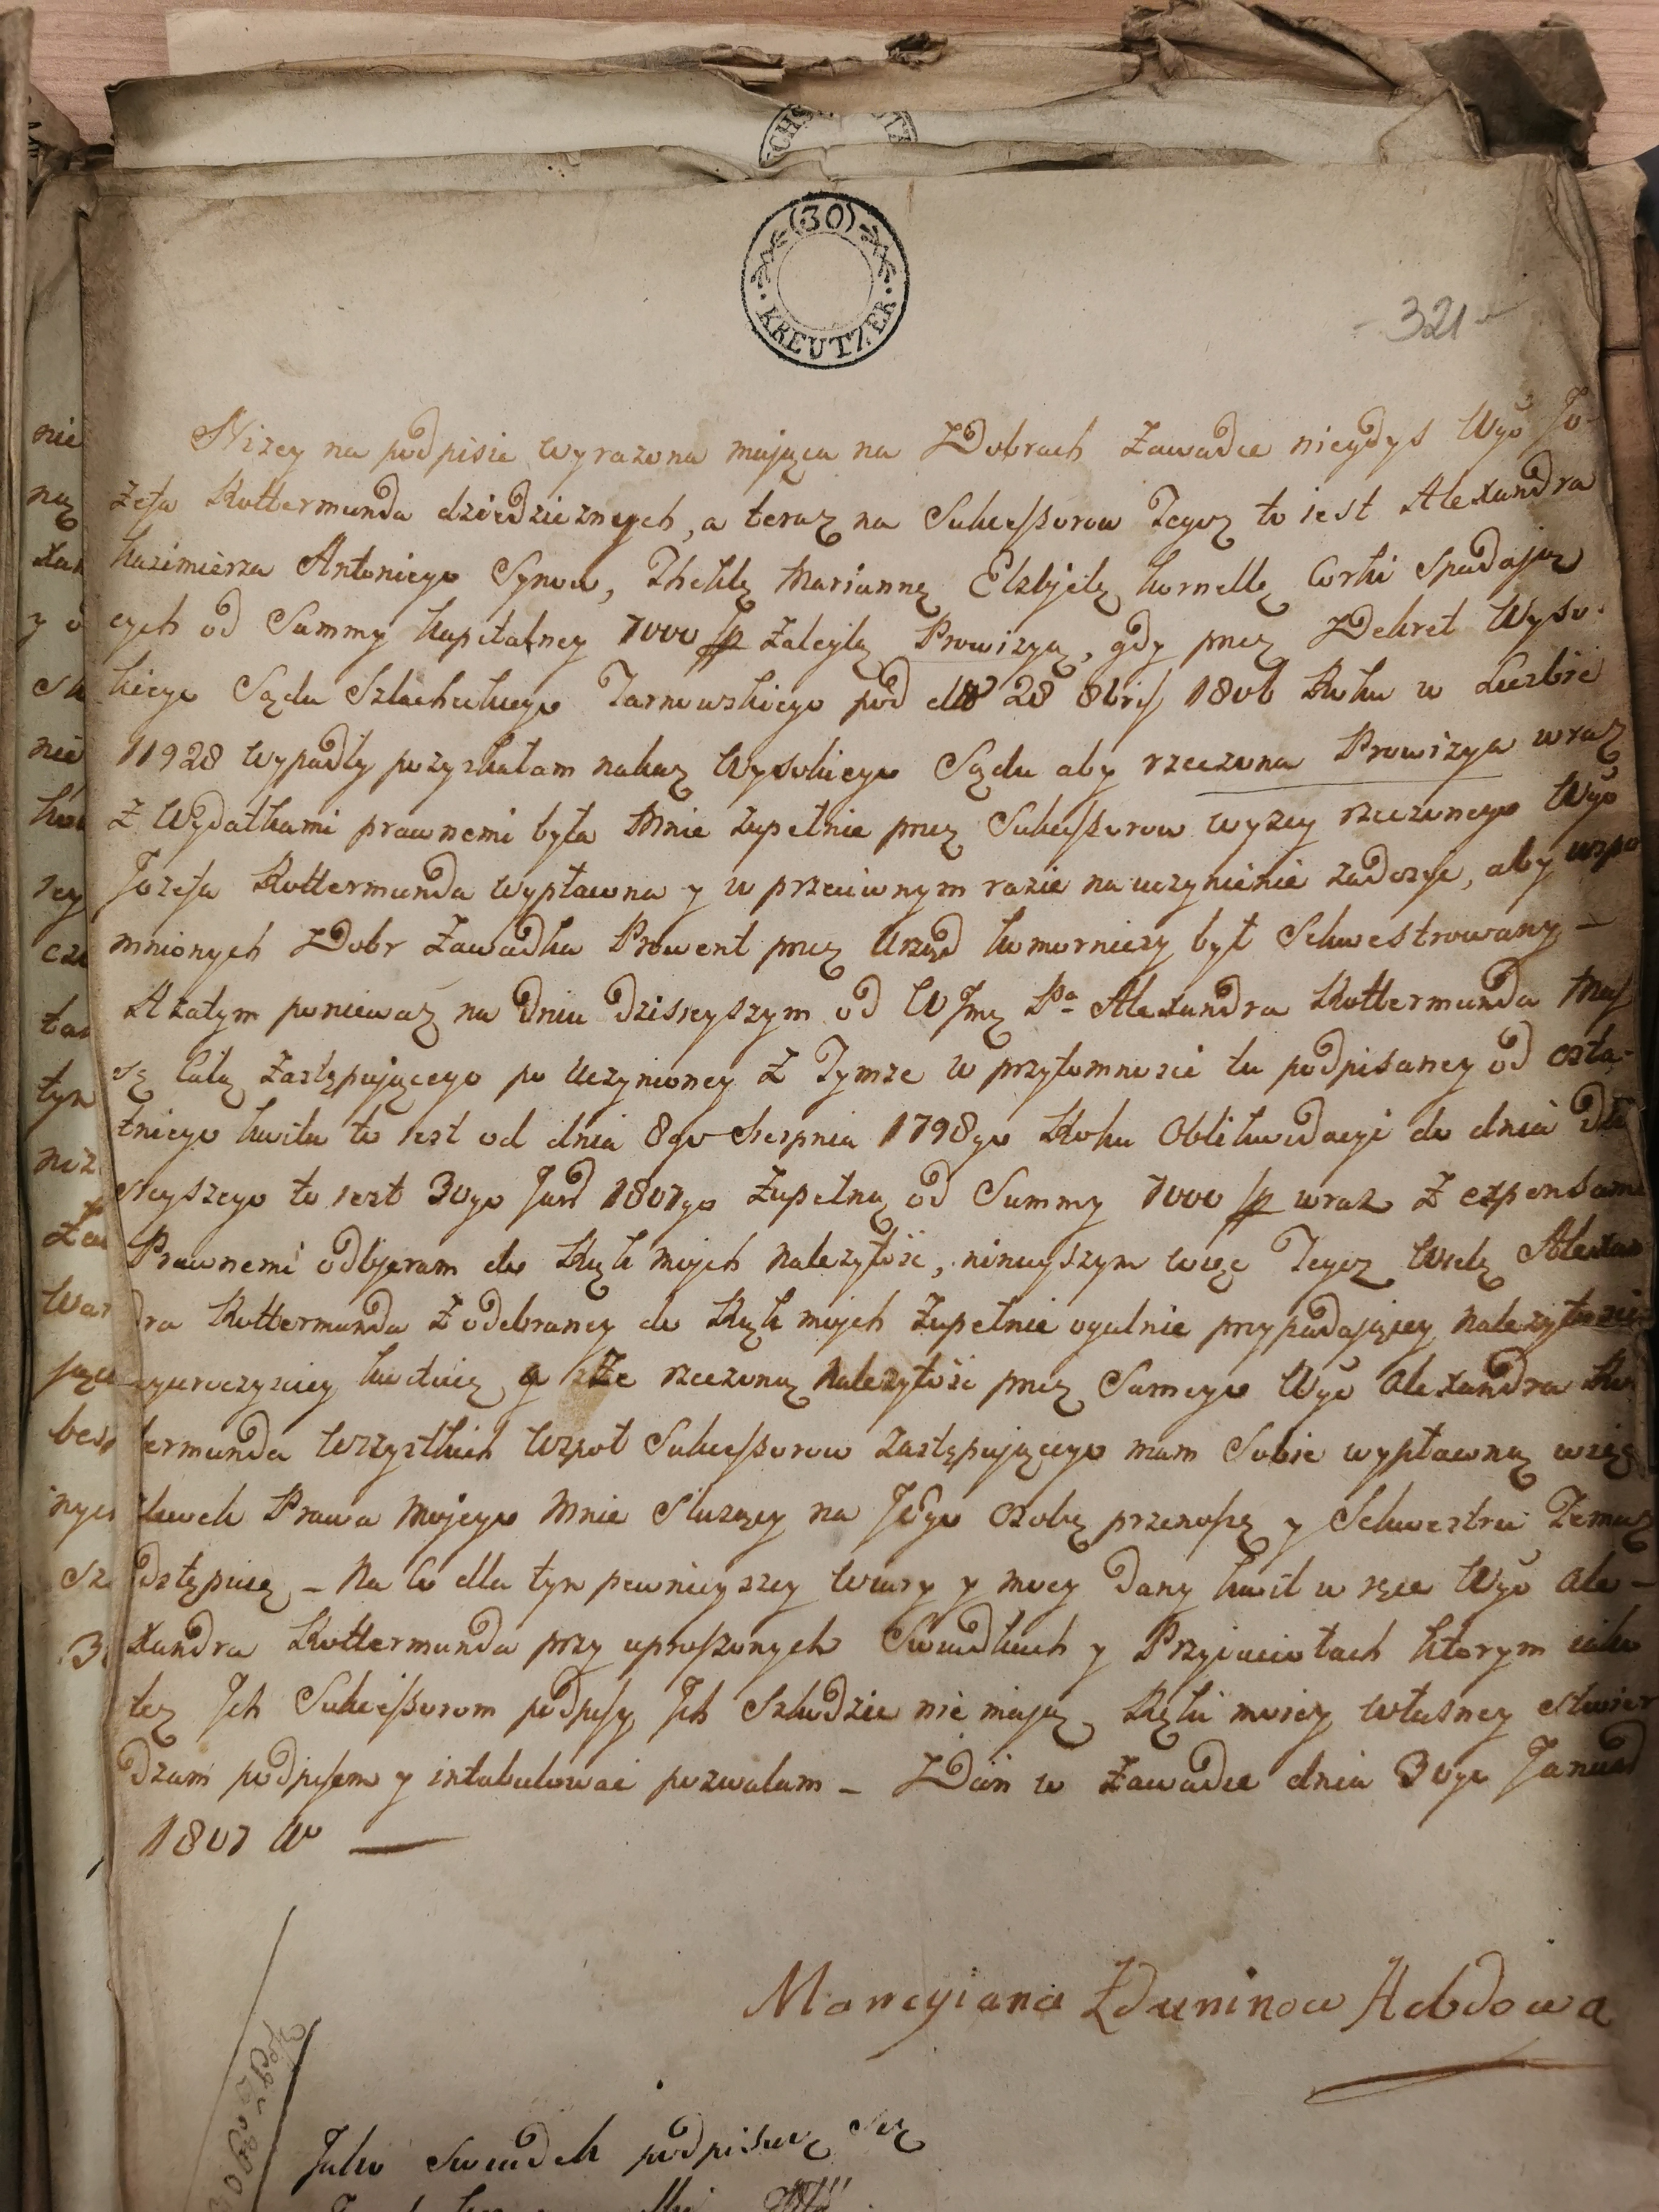 (30)
KREUTZER
321
Niżey na podpisie wyrażona mająca na Dobrach Zawadce niegdys Wgo Jo-
zefa Rottermunda dziedzicznych, a teraz na Sukceszorow Tegoz to iest Alexandra
Kazimierza Antoniego Synow, Theklę Mariannę Elzbjetę Kornellę Corki Spadaiąz
cych od Summy Kapitalney 7000 fp Zaległą Prowizyą, gdy przez Dekret Wyso-
kiego Sądu Szlacheckiego Tarnowskiego pod d 28 8bris 1806 Roku w Liczbie
11928 wypadły pozyskałam nakaz Wysokiego Sądu aby rzeczona Prowizya wraz
z Wydatkami prawnemi była Mnie zupełnie przez Sukceszorow wyzey rzeczonego Wgo
Jozefa Rottermunda wypłacona y w przeciwnym razie na uczynienie zadosyc, aby wspo
mnionych Dobr Zawadka Prowent przez Urząd Komorniczy był Sekwestrowany –
A zatym poniewaz na Dniu Dzisieyszym od WJmć Pa Alexandra Rottermunda Mas
sę Całą Zastępującego po Uczynioney z Tymze w przytomnosci tu podpisaney od osta-
tniego Kwitu to iest od dnia 8go Sierpnia 1798go Roku Oblikwidacyi do dnia Dzi
sieyszego to iest 30go Jan 1807go Zupełną od Summy 7000 fp wraz z expensami
Prawnemi odbjeram do Rąk mojch należytość, ninieyszym więc Tegoz Wielz Alexan
dra Rottermunda z odebraney do Rąk mojch Zupełnie ogulnie przypadaiącey należytosci
kwituię y że rzeczoną należytość przez Samego Wgo Alexandra Ro
termunda Wszystkich Wspoł Sukceszorow zastępującego mam Sobie wypłaconą
Prawa Mojego Mnie Służący na Jego Osobę przenoszę y Sekwestru Temuz
odstępuię – Na Co dla tym pewnieyszey Wiary y mocy Dany kwit w ręce Wgo Ale-
xandra Rottermunda przy uproszonych Swiadkach y Przyiaciołach którym iako
tez Jch Sukceszorom podpisy Jch Szkodzic nie maią, Ręki moiey własney stwier
dzam podpisem y intabulować pozwalam – Dan w Zawadce dnia 30go Januar
1807 Ro —
Marcyiana Zduninow Hebdowa
Jako Swiadek podpisuię się